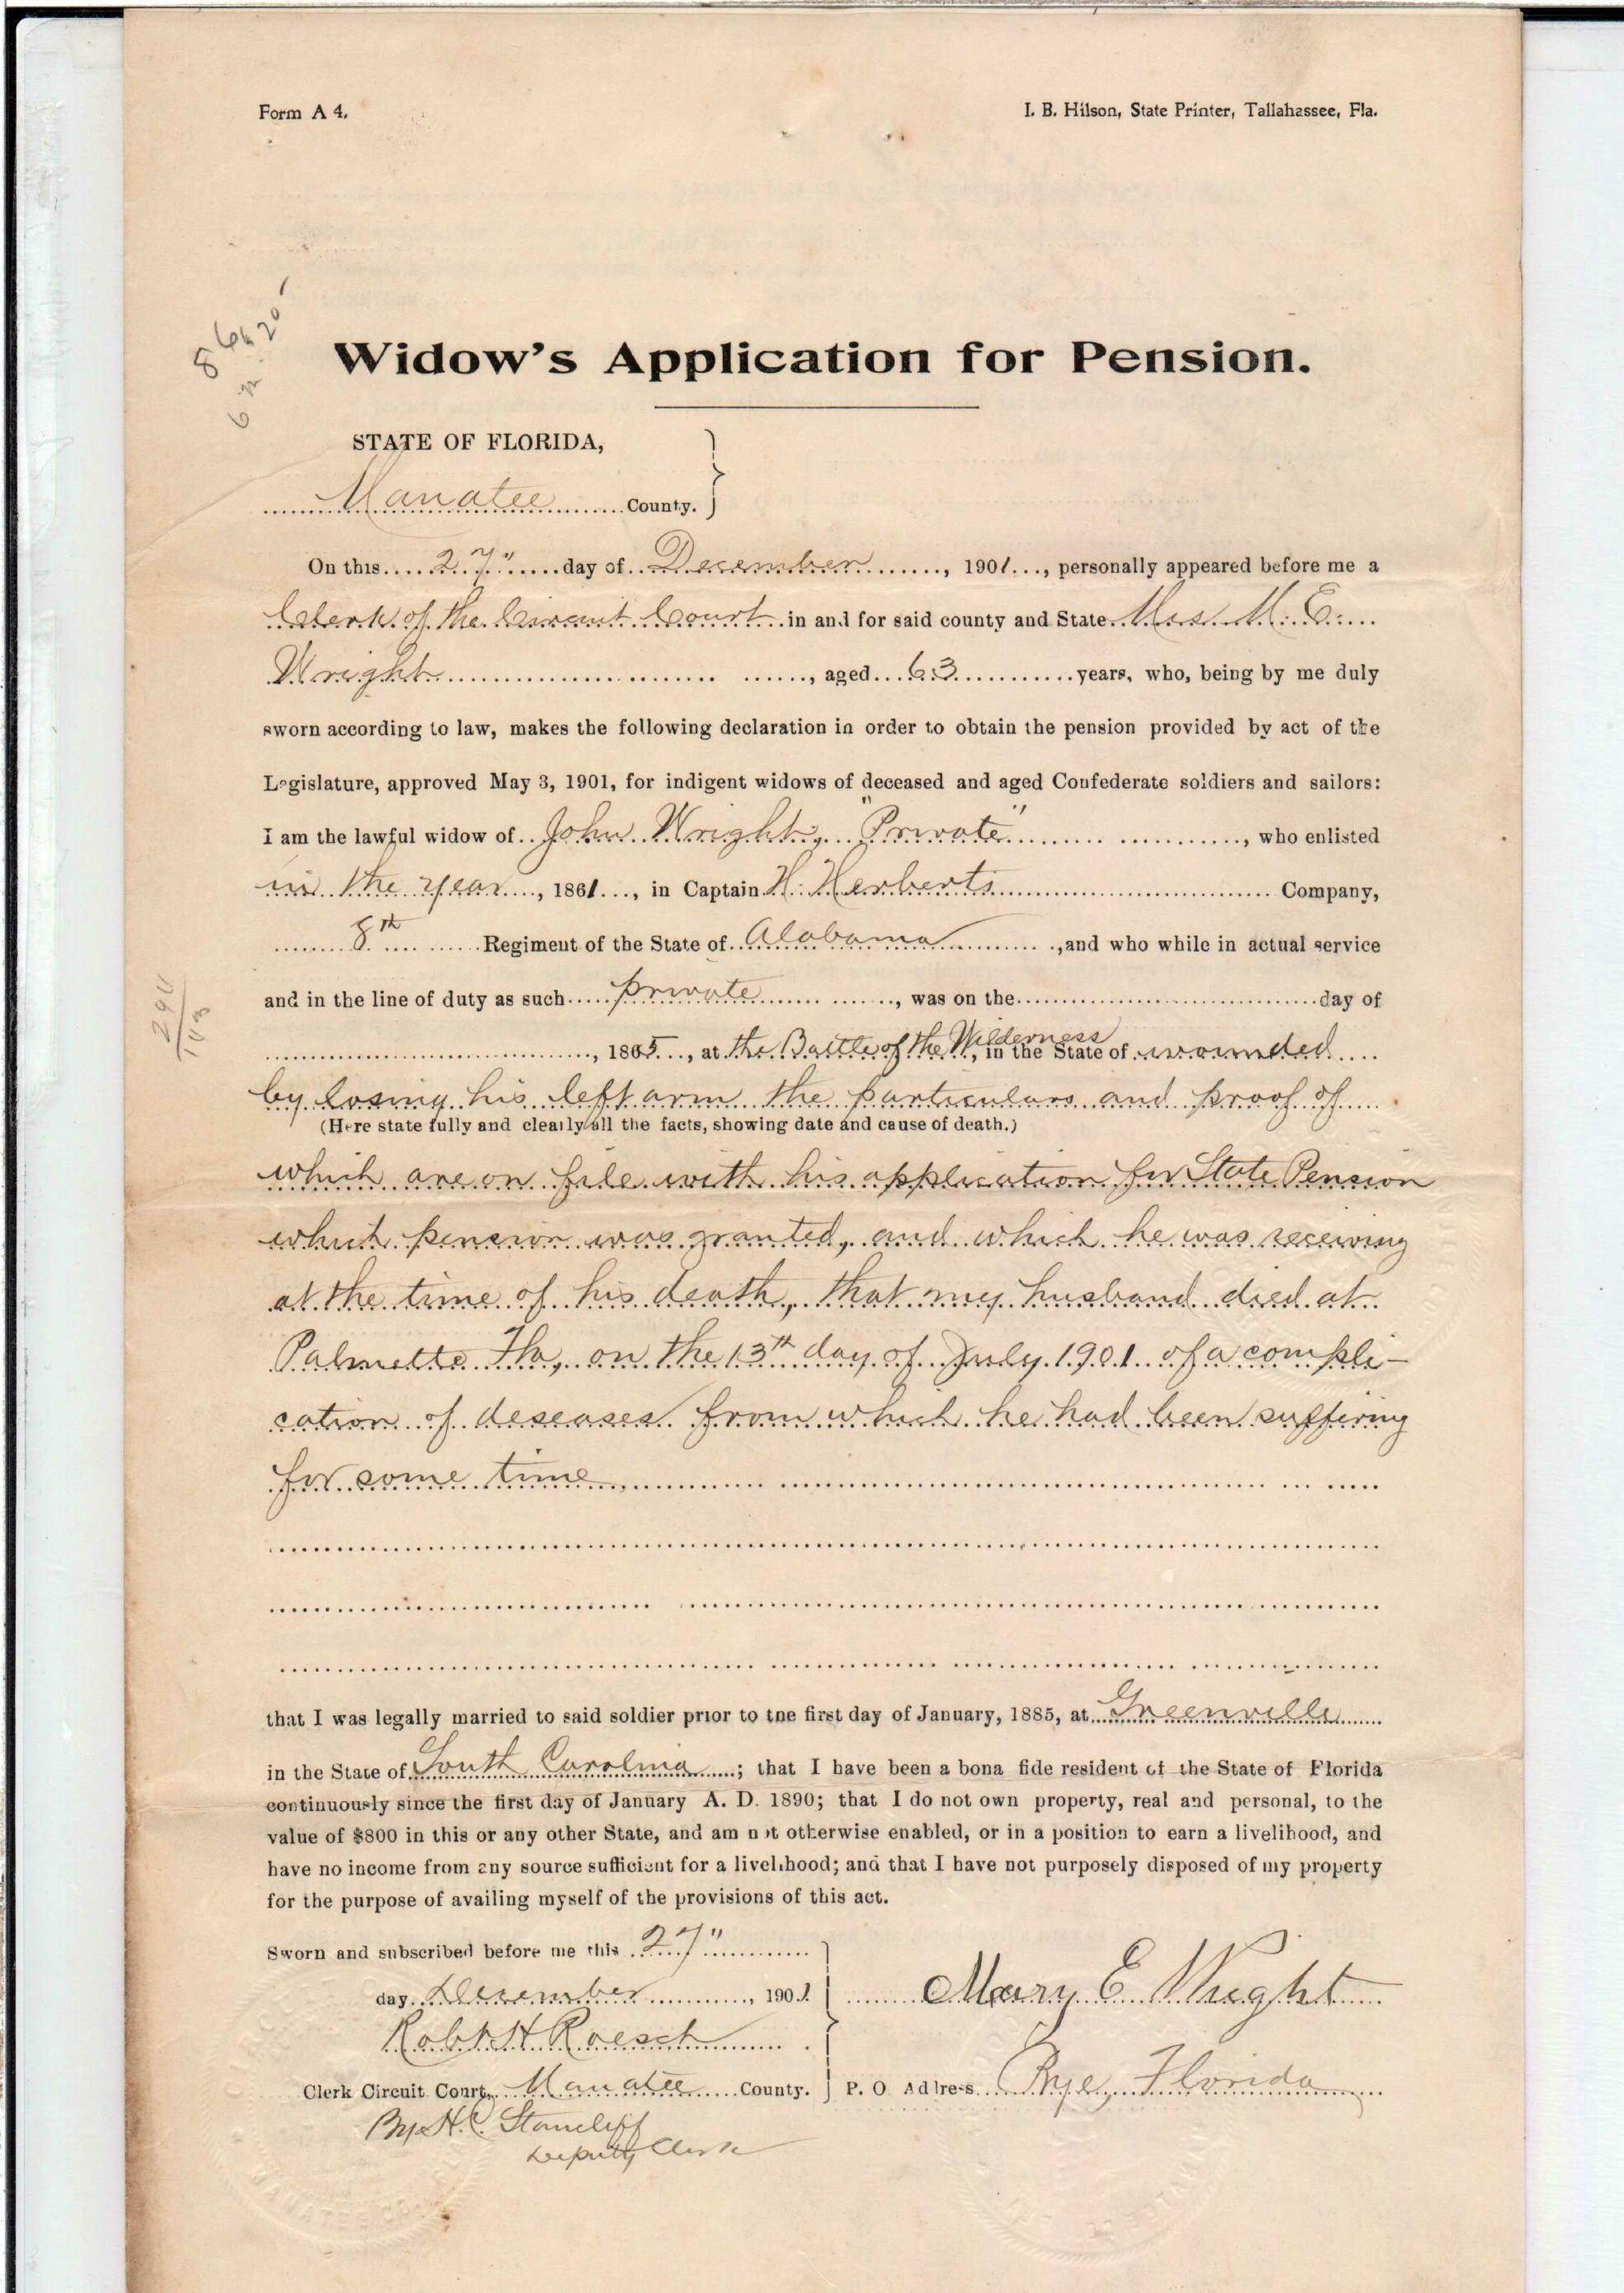 Form A 4.
I. B. Hilson, State Printer, Tallahassee, Fla.
Widow's Application for Pension.
STATE OF FLORIDA,
Manatee County.
On this 27" day of December, 1901, personally appeared before me a
Clerk of the Circuit Court in and for said county and State Mrs. M. E.
Wright, aged 63 years, who, being by me duly
sworn according to law, makes the following declaration in order to obtain the pension provided by act of the
Legislature, approved May 3, 1901, for indigent widows of deceased and aged Confederate soldiers and sailors:
I am the lawful widow of John Wright, "Private", who enlisted
in the year, 1861, in Captain H. Herberts Company,
8th Regiment of the State of Alabama, and who while in actual service
and in the line of duty as such private, was on the day of
, 1865, at the Battle of the Wilderness, in the State of wounded
by losing his left arm the particulars and proof of
(Here state fully and clearly all the facts, showing date and cause of death.)
which are on file with his application for State Pension
which pension was granted, and which he was receiving
at the time of his death, that my husband died at
Palmetto Fla, on the 13th day of July 1901 of a compli-
cation of deseases from which he had been suffering
for some time
that I was legally married to said soldier prior to the first day of January, 1885, at Greenville
in the State of South Carolina; that I have been a bona fide resident of the State of Florida
continuously since the first day of January A. D. 1890; that I do not own property, real and personal, to the
value of $800 in this or any other State, and am not otherwise enabled, or in a position to earn a livelihood, and
have no income from any source sufficient for a livelihood; and that I have not purposely disposed of my property
for the purpose of availing myself of the provisions of this act.
Sworn and subscribed before me this 27"
day December, 1901
Mary E Wright
Robt H Roesch
Clerk Circuit Court, Manatee County.
P. O. Address Rye, Florida
By H. C. Stancliff
Deputy Clerk